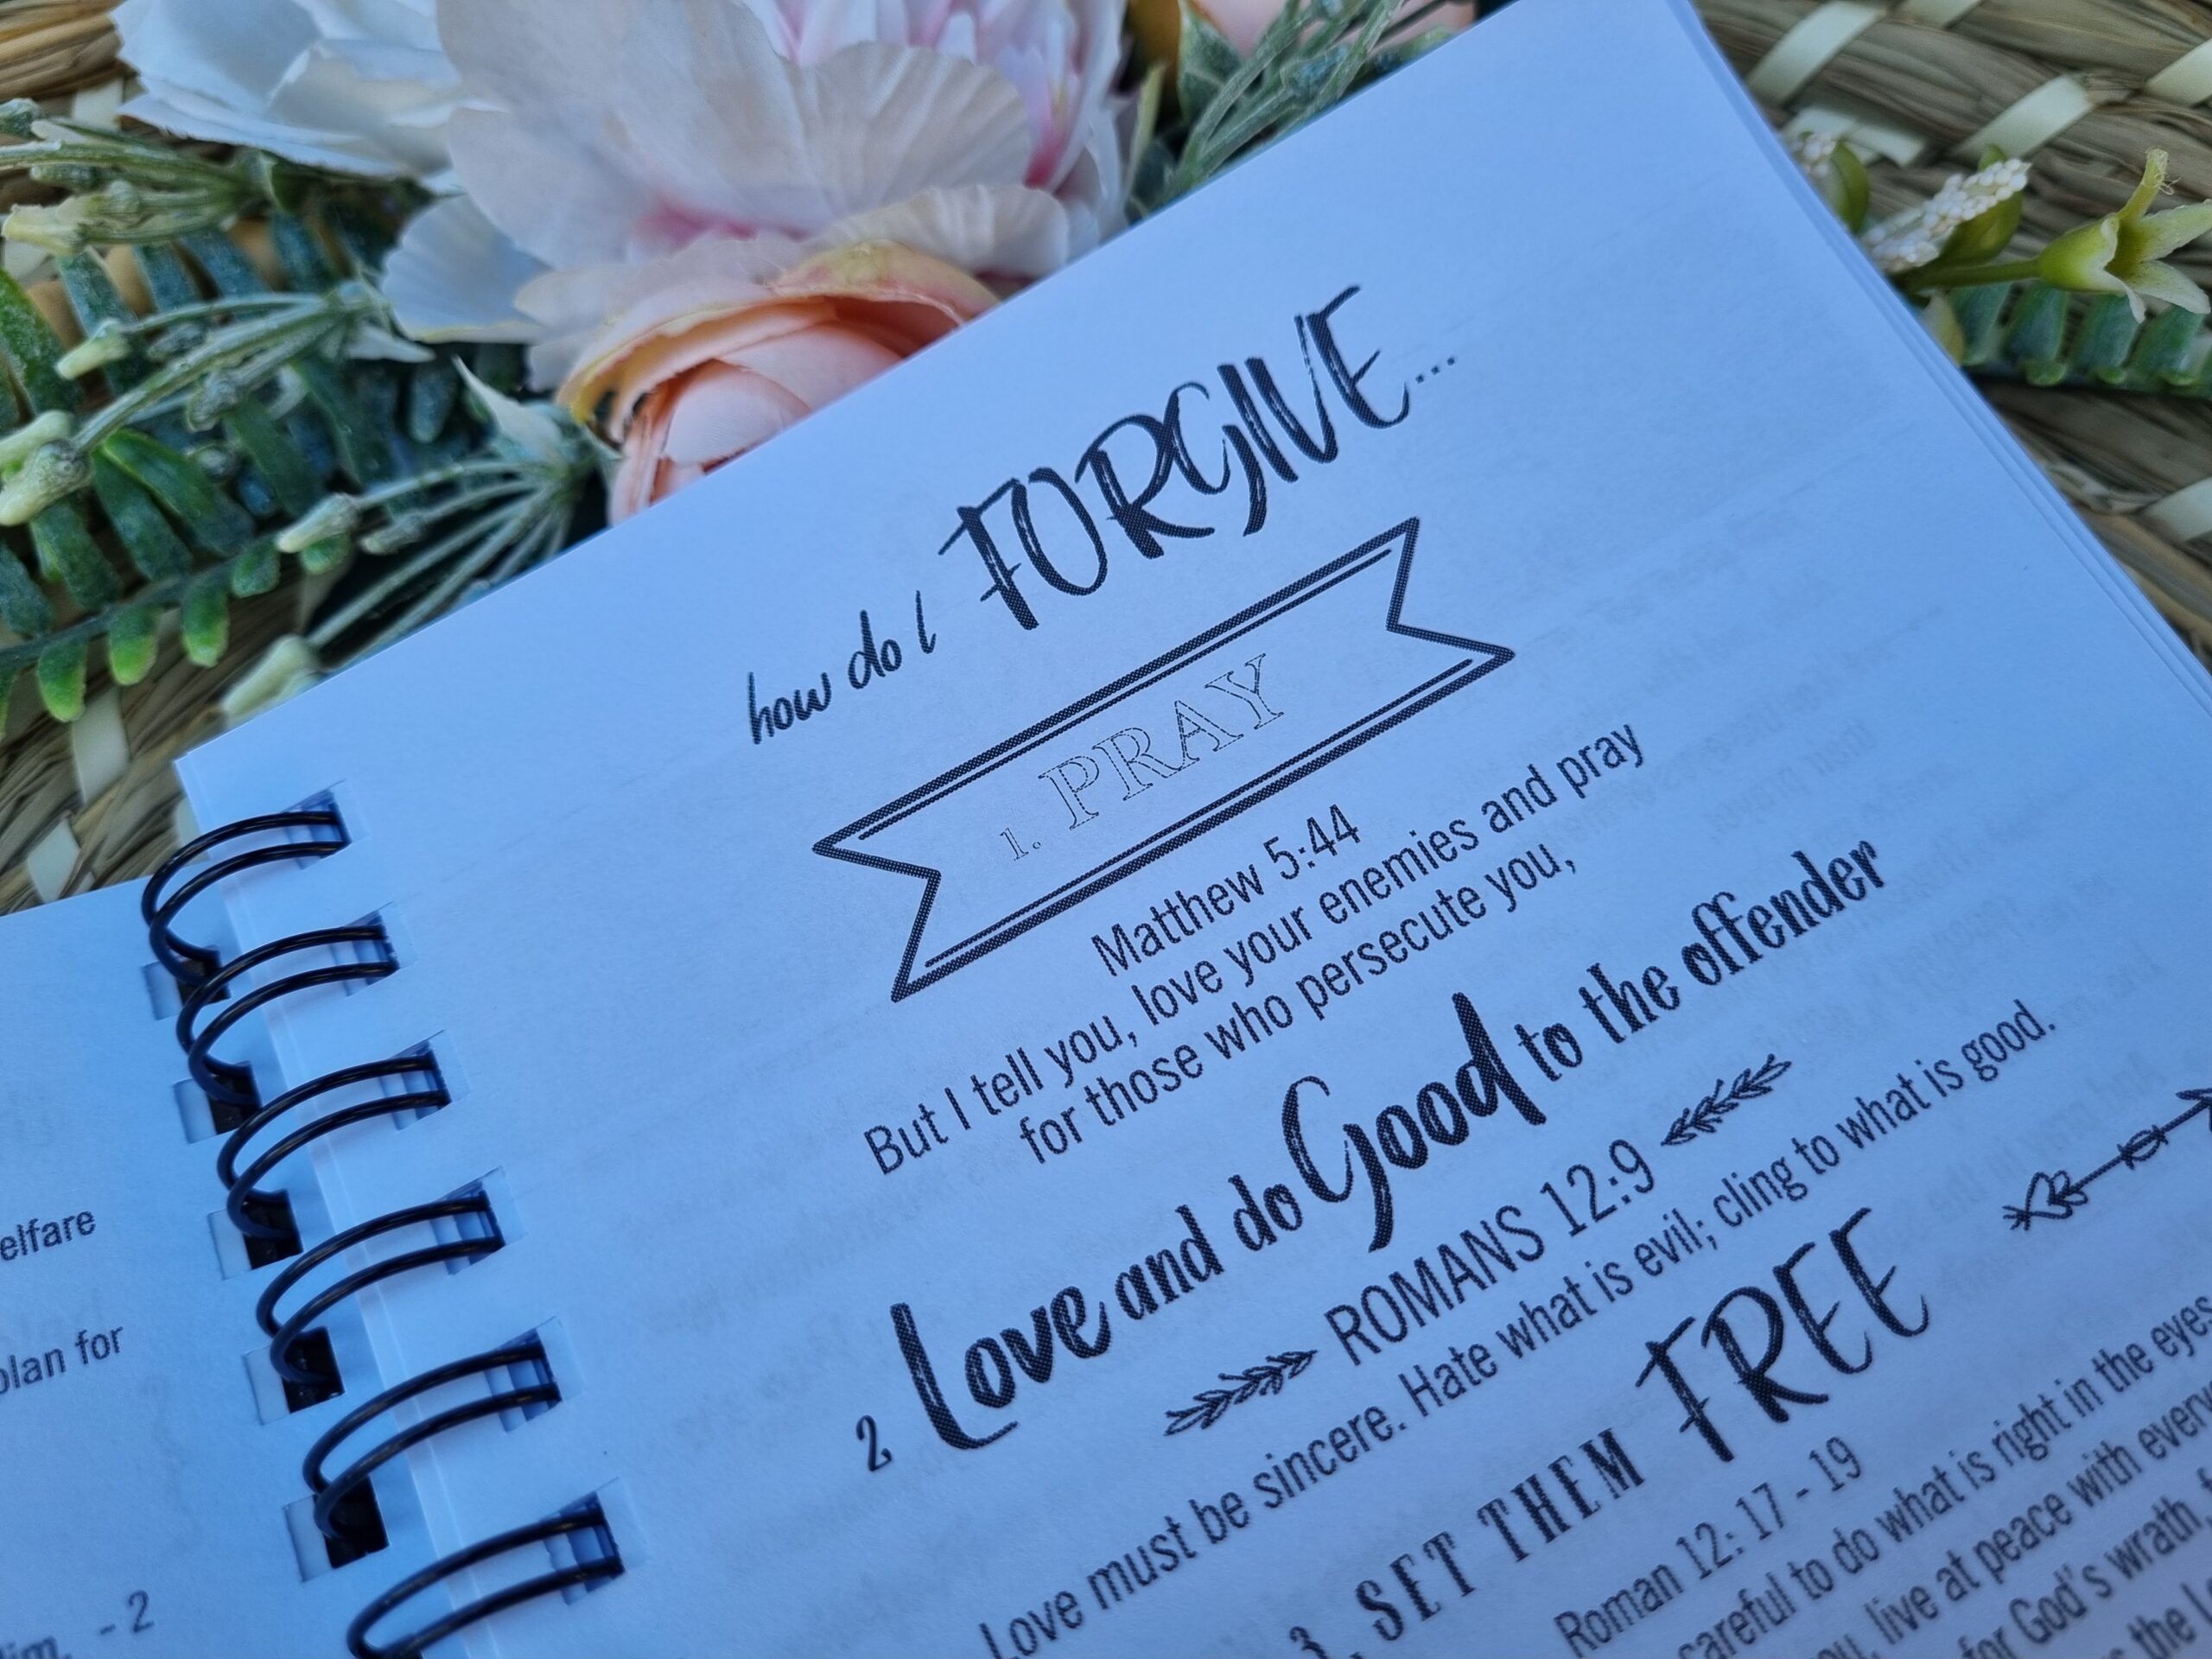 elfare
plan for
- 2
how do I FORGIVE...
1. PRAY
Matthew 5:44
But I tell you, love your enemies and pray
for those who persecute you,
2 Love and do Good to the offender
ROMANS 12:9
Love must be sincere. Hate what is evil; cling to what is good.
3. SET THEM FREE
Roman 12: 17 - 19
careful to do what is right in the eyes
you, live at peace with every
for God's wrath,
the